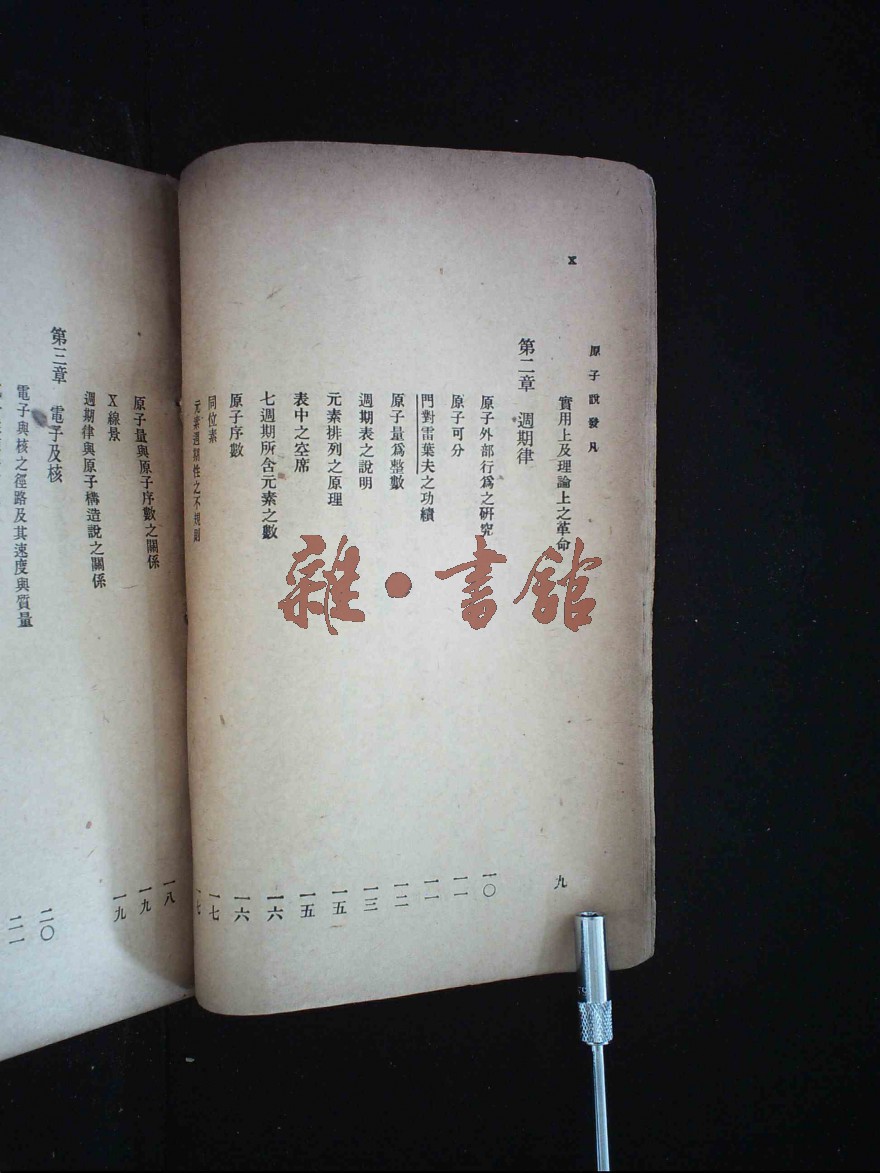 X
原子說發凡
實用上及理論上之革命 九
第二章 週期律
原子外部行爲之研究 一〇
原子可分 一一
門對雷葉夫之功績 一一
原子量爲整數 一二
週期表之說明 一三
元素排列之原理 一五
表中之空席 一五
七週期所含元素之數 一六
原子序數 一六
同位素 一七
元素週期性之不規則 一七
原子量與原子序數之關係 一八
X線景 一九
週期律與原子構造說之關係 一九
第三章 電子及核
電子與核之徑路及其速度與質量 二〇
二一
雜·書館